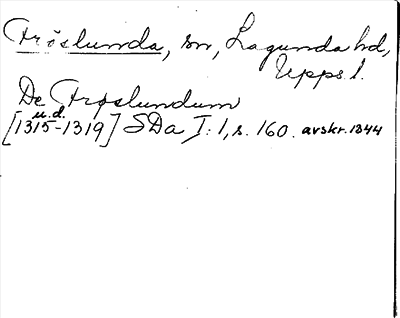 Fröslunda, sn, Lagunda hd,
Upps l.
De Frøslundum
u.d.
[1315-1319] SDa I: 1, s. 160. avskr. 1344